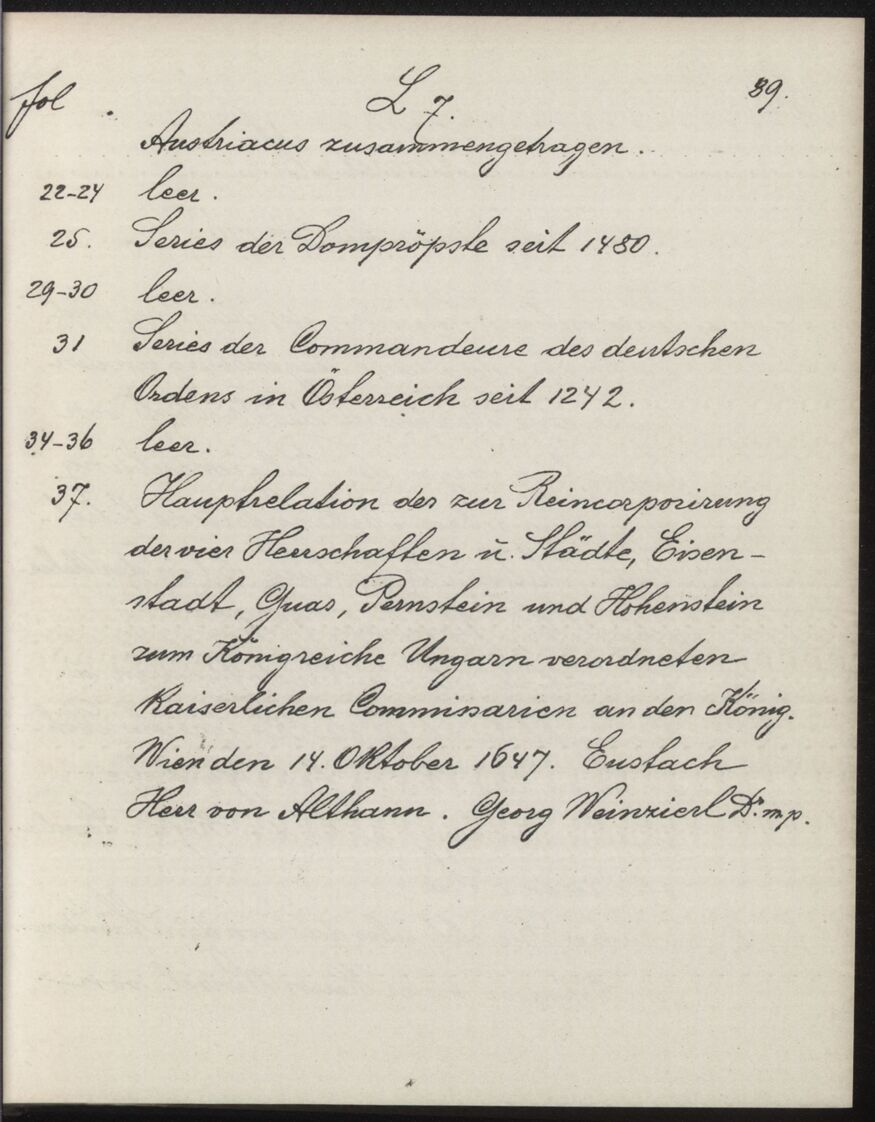 fol . L 7. 89.
Austriacus zusammengetragen.
22-24 leer.
25. Series der Dompröpste seit 1480.
29-30 leer.
31 Series der Commandeure des deutschen
Ordens in Österreich seit 1242.
34-36 leer.
37. Hauptrelation der zur Reincorporirung
der vier Herrschaften u. Städte, Eisen-
stadt, Guns, Pernstein und Hohenstein
zum Königreiche Ungarn verordneten
Kaiserlichen Commissarien an den König.
Wien den 14. Oktober 1647. Eustach
Herr von Althann. Georg Weinzierl Dr. m.p.